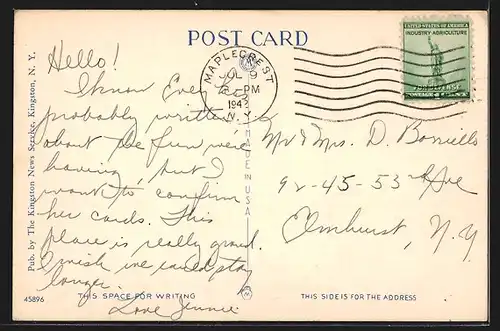 POST CARD
UNITED STATES OF AMERICA
INDUSTRY AGRICULTURE
FOR DEFENSE
MAPLECREST
JUL 9
PM
1942
N. Y.
Hello!
I know Eve, has
probably written
about the fun we're
having, but I
want to confirm
her cards. This
place is really grand.
I wish we could stay
longer.
Love Jennie
Mr & Mrs. D. Borriello
92-45-53rd Ave
Elmhurst, N.Y.
Pub. by The Kingston News Service, Kingston, N. Y.
MADE IN U.S.A.
45896
THIS SPACE FOR WRITING
THIS SIDE IS FOR THE ADDRESS